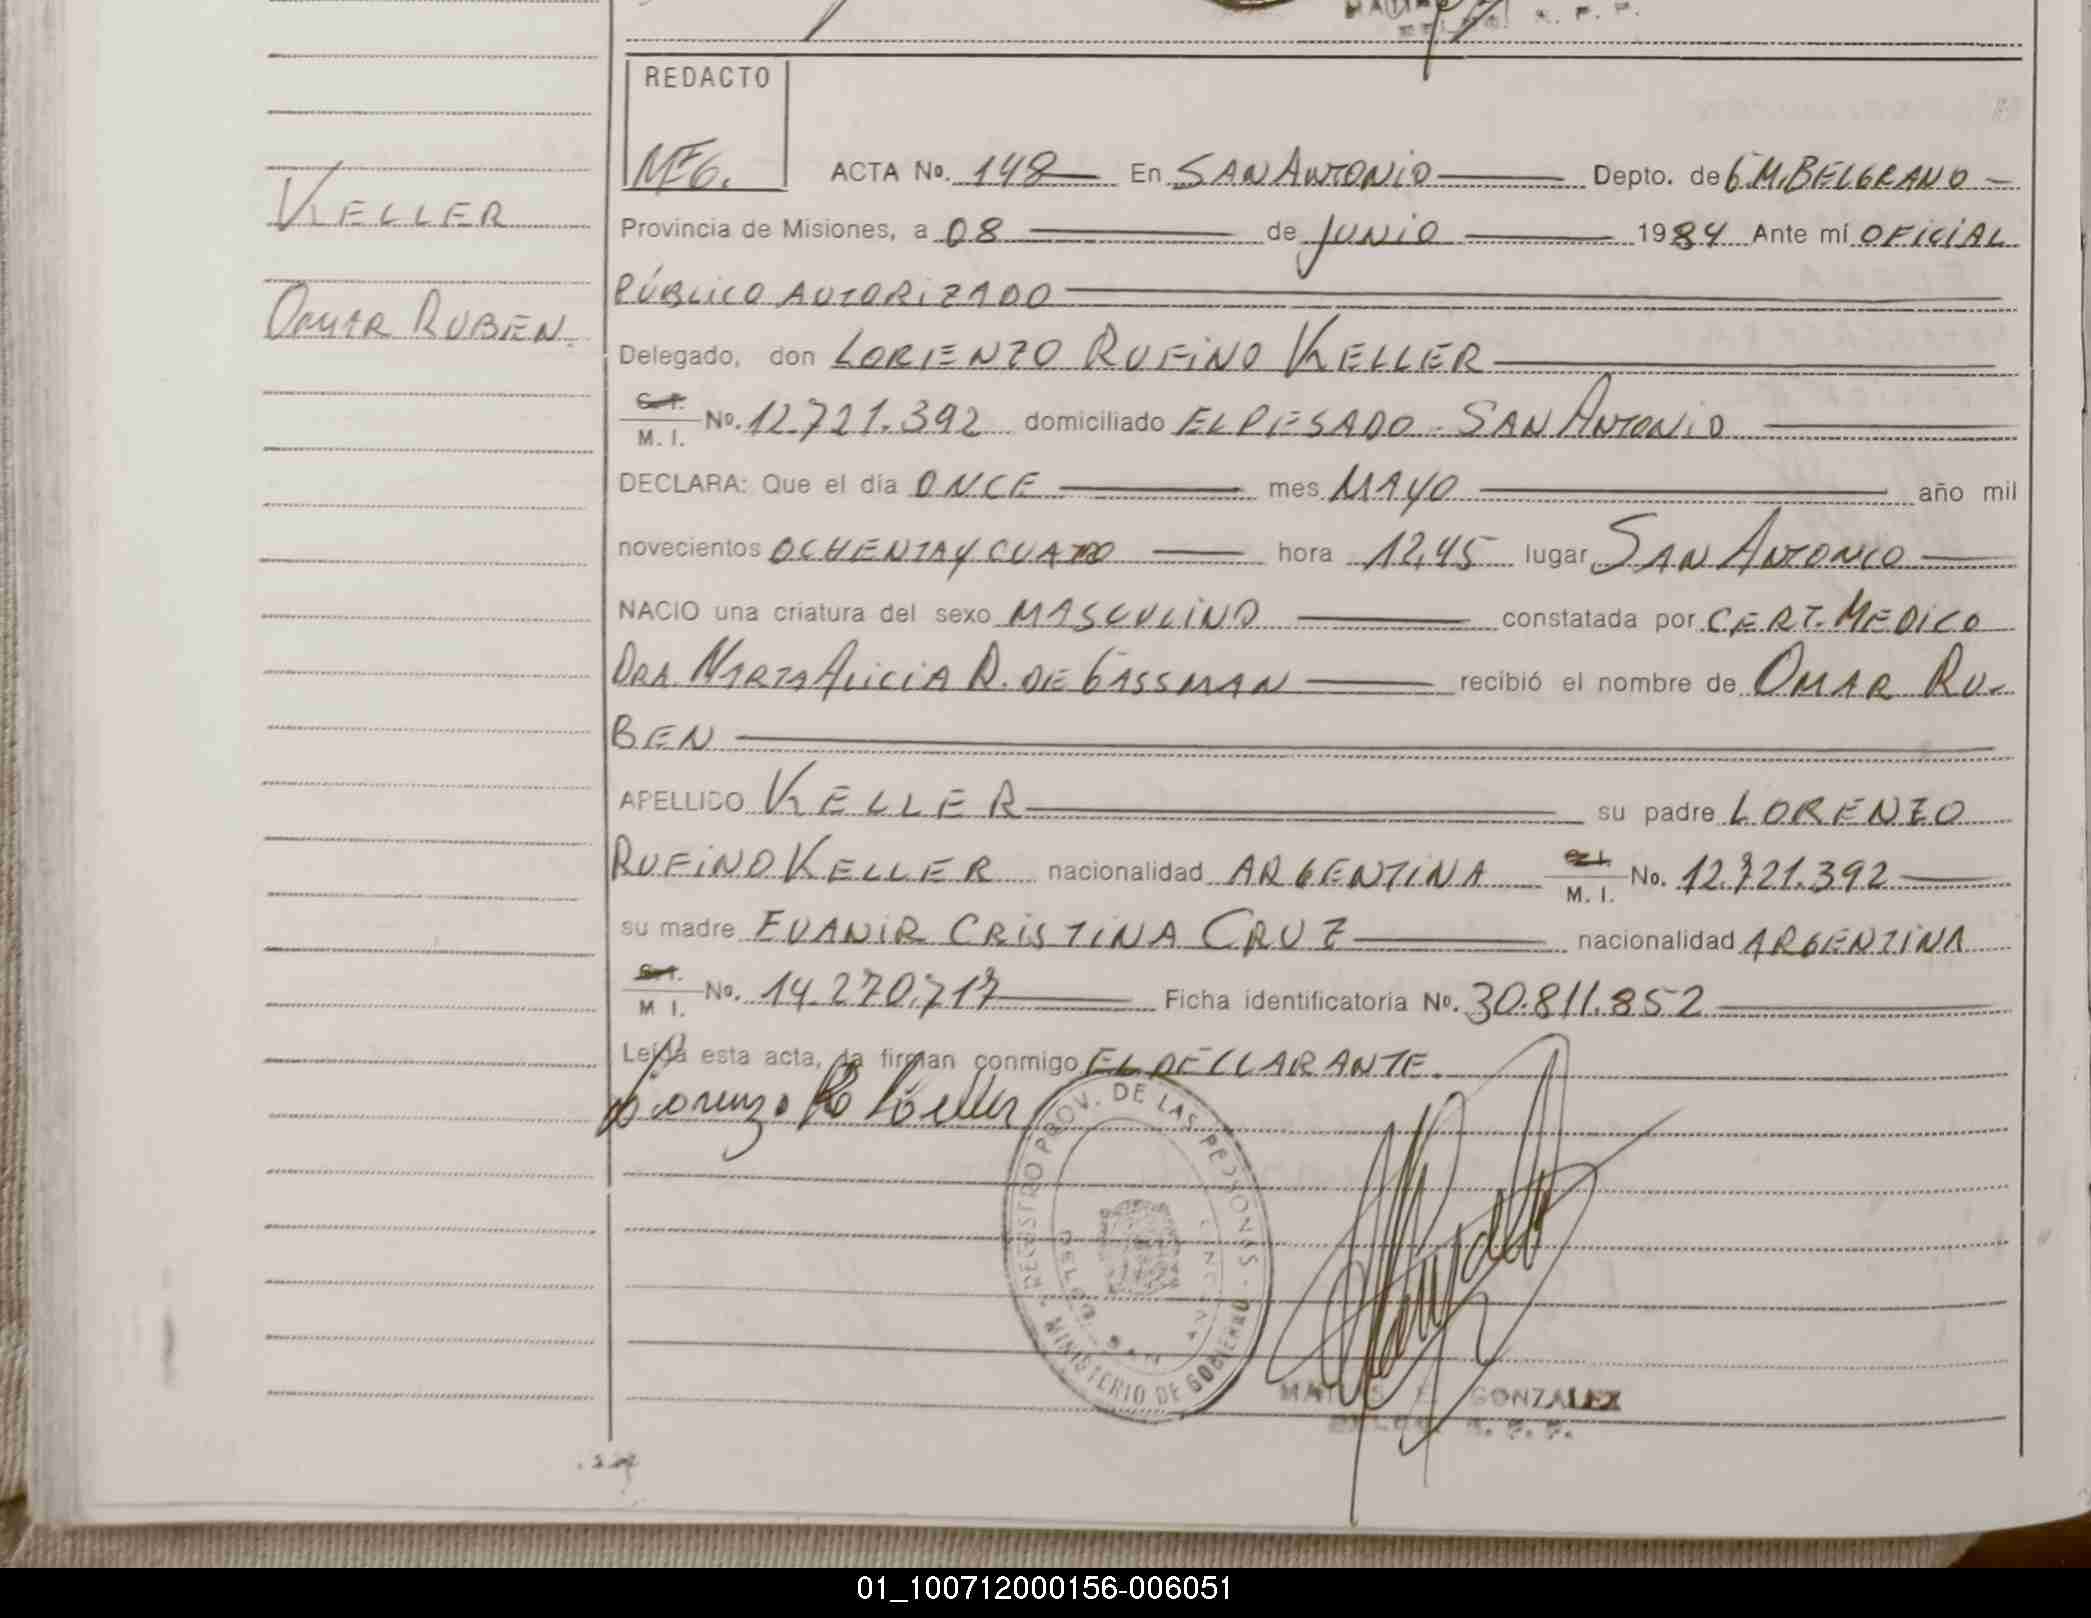 REDACTO
MEG.
ACTA No. 148 En SAN ANTONIO Depto. de G.M. BELGRANO
KELLER
Provincia de Misiones, a 08 de JUNIO 1984 Ante mí OFICIAL
PÚBLICO AUTORIZADO
OMAR RUBEN.
Delegado, don LORENZO RUFINO KELLER
C.I.
M. I. No. 12.721.392 domiciliado EL PESADO - SAN ANTONIO
DECLARA: Que el día ONCE mes MAYO año mil
novecientos OCHENTA Y CUATRO hora 12,45 lugar SAN ANTONIO
NACIO una criatura del sexo MASCULINO constatada por CERT. MEDICO
DRA. MARTA ALICIA R. DE GASSMAN recibió el nombre de OMAR RU-
BEN
APELLIDO KELLER su padre LORENZO
RUFINO KELLER nacionalidad ARGENTINA C.I. M. I. No. 12.721.392
su madre EVANIR CRISTINA CRUZ nacionalidad ARGENTINA
C.I.
M I. No. 14.270.717 Ficha identificatoria No. 30.811.852
Leída esta acta, la firman conmigo EL DECLARANTE.
Lorenzo R Keller
REGISTRO PROV. DE LAS PERSONAS - MINISTERIO DE GOBIERNO
GONZALEZ
01_100712000156-006051